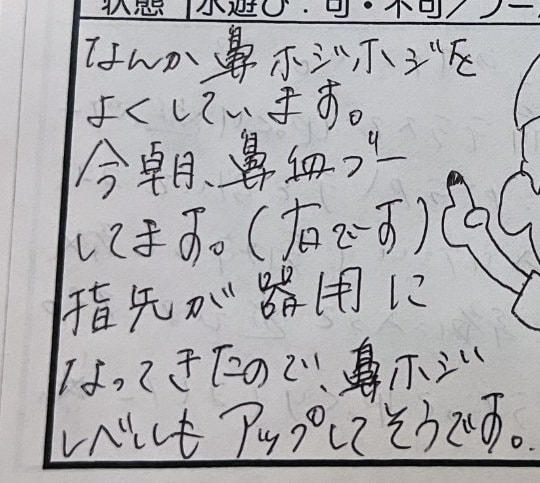 状態 水遊び:可・不可/プー
なんか鼻ホジホジを
よくしています。
今朝、鼻血ブー
してます。(右です)
指先が器用に
なってきたので、鼻ホジ
レベルもアップしてそうです。